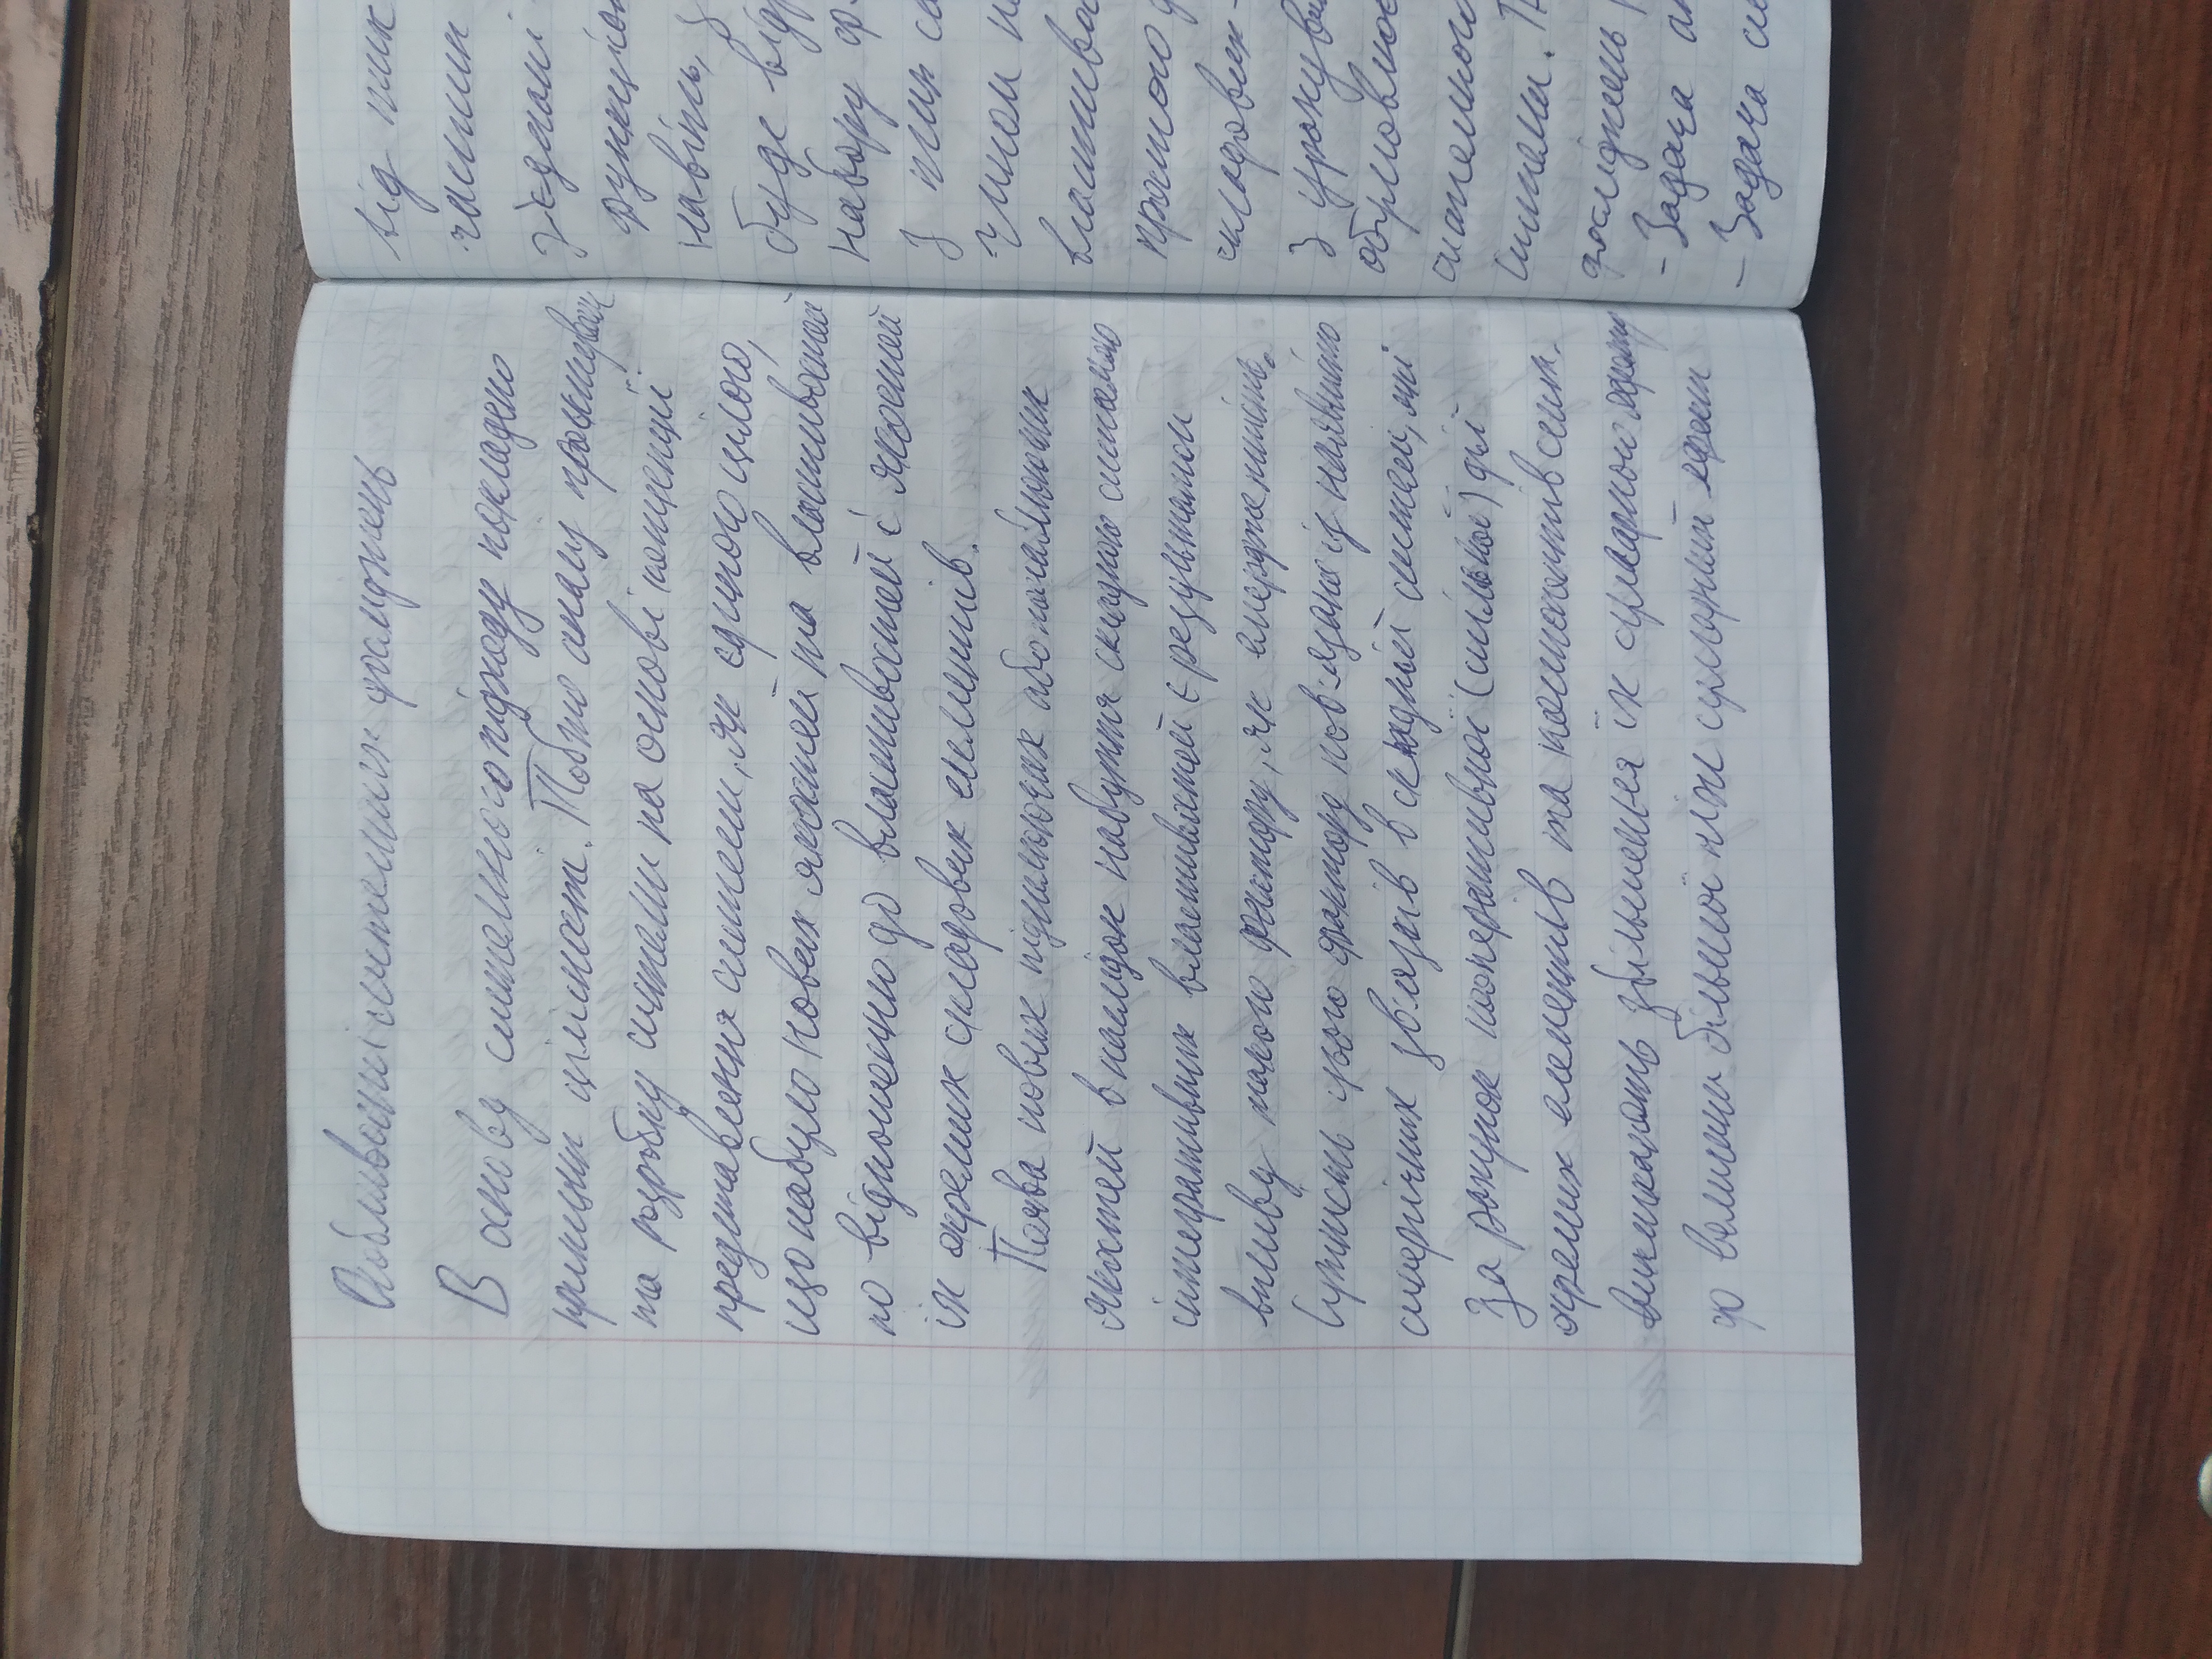 Особливості системних досліджень
В основу системного підходу покладено
принцип цілісності. Тобто аналіз проектуван
та розробку системи на основі концепції
представлення системи, як єдиного цілого,
що набуло нових якостей та властивостей
по відношенню до властивостей і якостей
їх окремих складових елементів.
Поява нових підсилюючих або послаблюючих
якостей внаслідок набуття складною системою
інтегративних властивостей є результатом
впливу такого фактору, як емерджентність.
Сутність цього фактору пов'язана із наявністю
синергічних зв'язків в складній системі, які
за рахунок кооперативної (спільної) дії
окремих елементів та компонентів сист.
викликають збільшення їх сумарного ефекту
до величини більшої ніж сумарний ефект
від тих
частин
з'єднані
функціон
навіть, з
буде відр
набору ф
з тих с
чином
властивос
простого
складових
з урахуван
обумовлює
системного
системи.
досліджень
- Задача ан
- Задача си